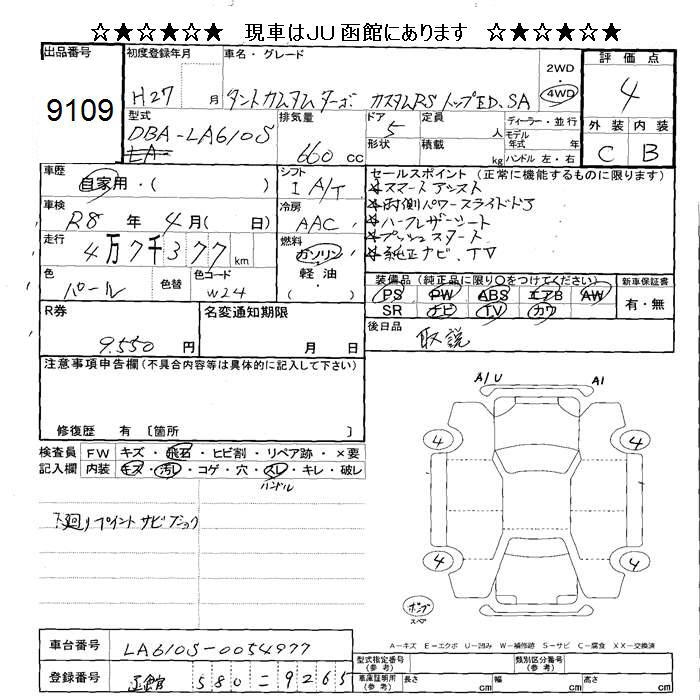 ☆★☆★☆★ 現車はJU函館にあります ☆★☆★☆★
出品番号
9109
初度登録年月
H27 月
車名・グレード
タントカスタムターボ カスタムRSトップED.SA
2WD
・
4WD
評価点
4
外装 内装
C B
型式
DBA-LA610S
LA-
排気量
660 cc
ドア
5
形状
定員
人
積載
kg
ディーラー・並行
モデル
年式 年
ハンドル 左・右
車歴
自家用・( )
シフト
I A/T
車検
R8 年 4月( 日)
冷房
AAC
走行
4万7千377 km
燃料
ガソリン
軽油・
( )
色
パール
色替
色コード
W24
セールスポイント (正常に機能するものに限ります)
★スマートアシスト
★両側パワースライドドア
★ハーフレザーシート
★プッシュスタート
★純正ナビ、TV
装備品(純正品に限り○をつけてください)
PS PW ABS エアB AW
SR ナビ TV カワ
新車保証書
有・無
R券
9.550 円
名変通知期限
月 日
後日品
取説
注意事項申告欄(不具合内容等は具体的に記入して下さい)
修復歴 有 〔箇所 〕
検査員
記入欄
FW キズ・飛石・ヒビ割・リペア跡・×要
内装 キズ・汚レ・コゲ・穴・スレ・キレ・破レ
ハンドル
下廻りペイントサビ
A/U A1
4 4
4 4
ポンプ
スペア
A-キズ E-エクボ U-凹み W-補修跡 S-サビ C-腐食 XX-交換済
車台番号 LA610S-0054977
登録番号 函館 580 = 9265
型式指定番号
(参考)
類別区分番号
(参考)
車庫証明用
(参考)
長さ cm 幅 cm 高さ cm